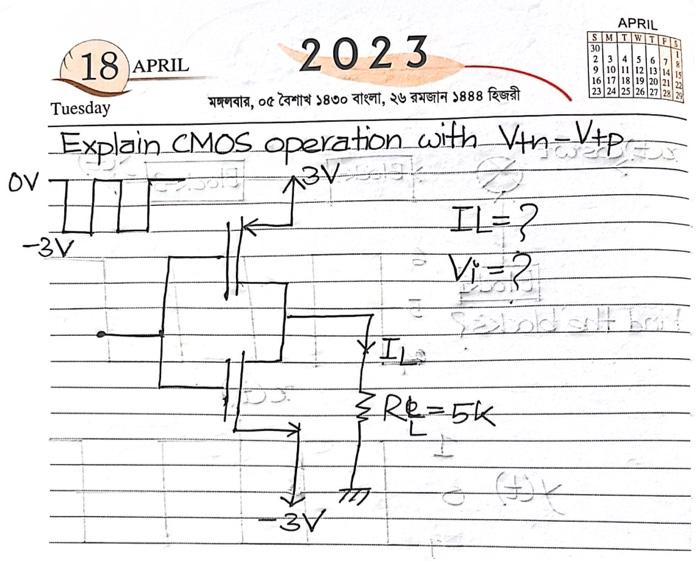 18 APRIL
Tuesday
2023
মঙ্গলবার, ০৫ বৈশাখ ১৪৩০ বাংলা, ২৬ রমজান ১৪৪৪ হিজরী
APRIL
S M T W T F S
30 1
2 3 4 5 6 7 8
9 10 11 12 13 14 15
16 17 18 19 20 21 22
23 24 25 26 27 28 29
Explain CMOS operation with Vtn-Vtp
0V
-3V
3V
IL=?
Vi=?
IL
RL=5K
-3V